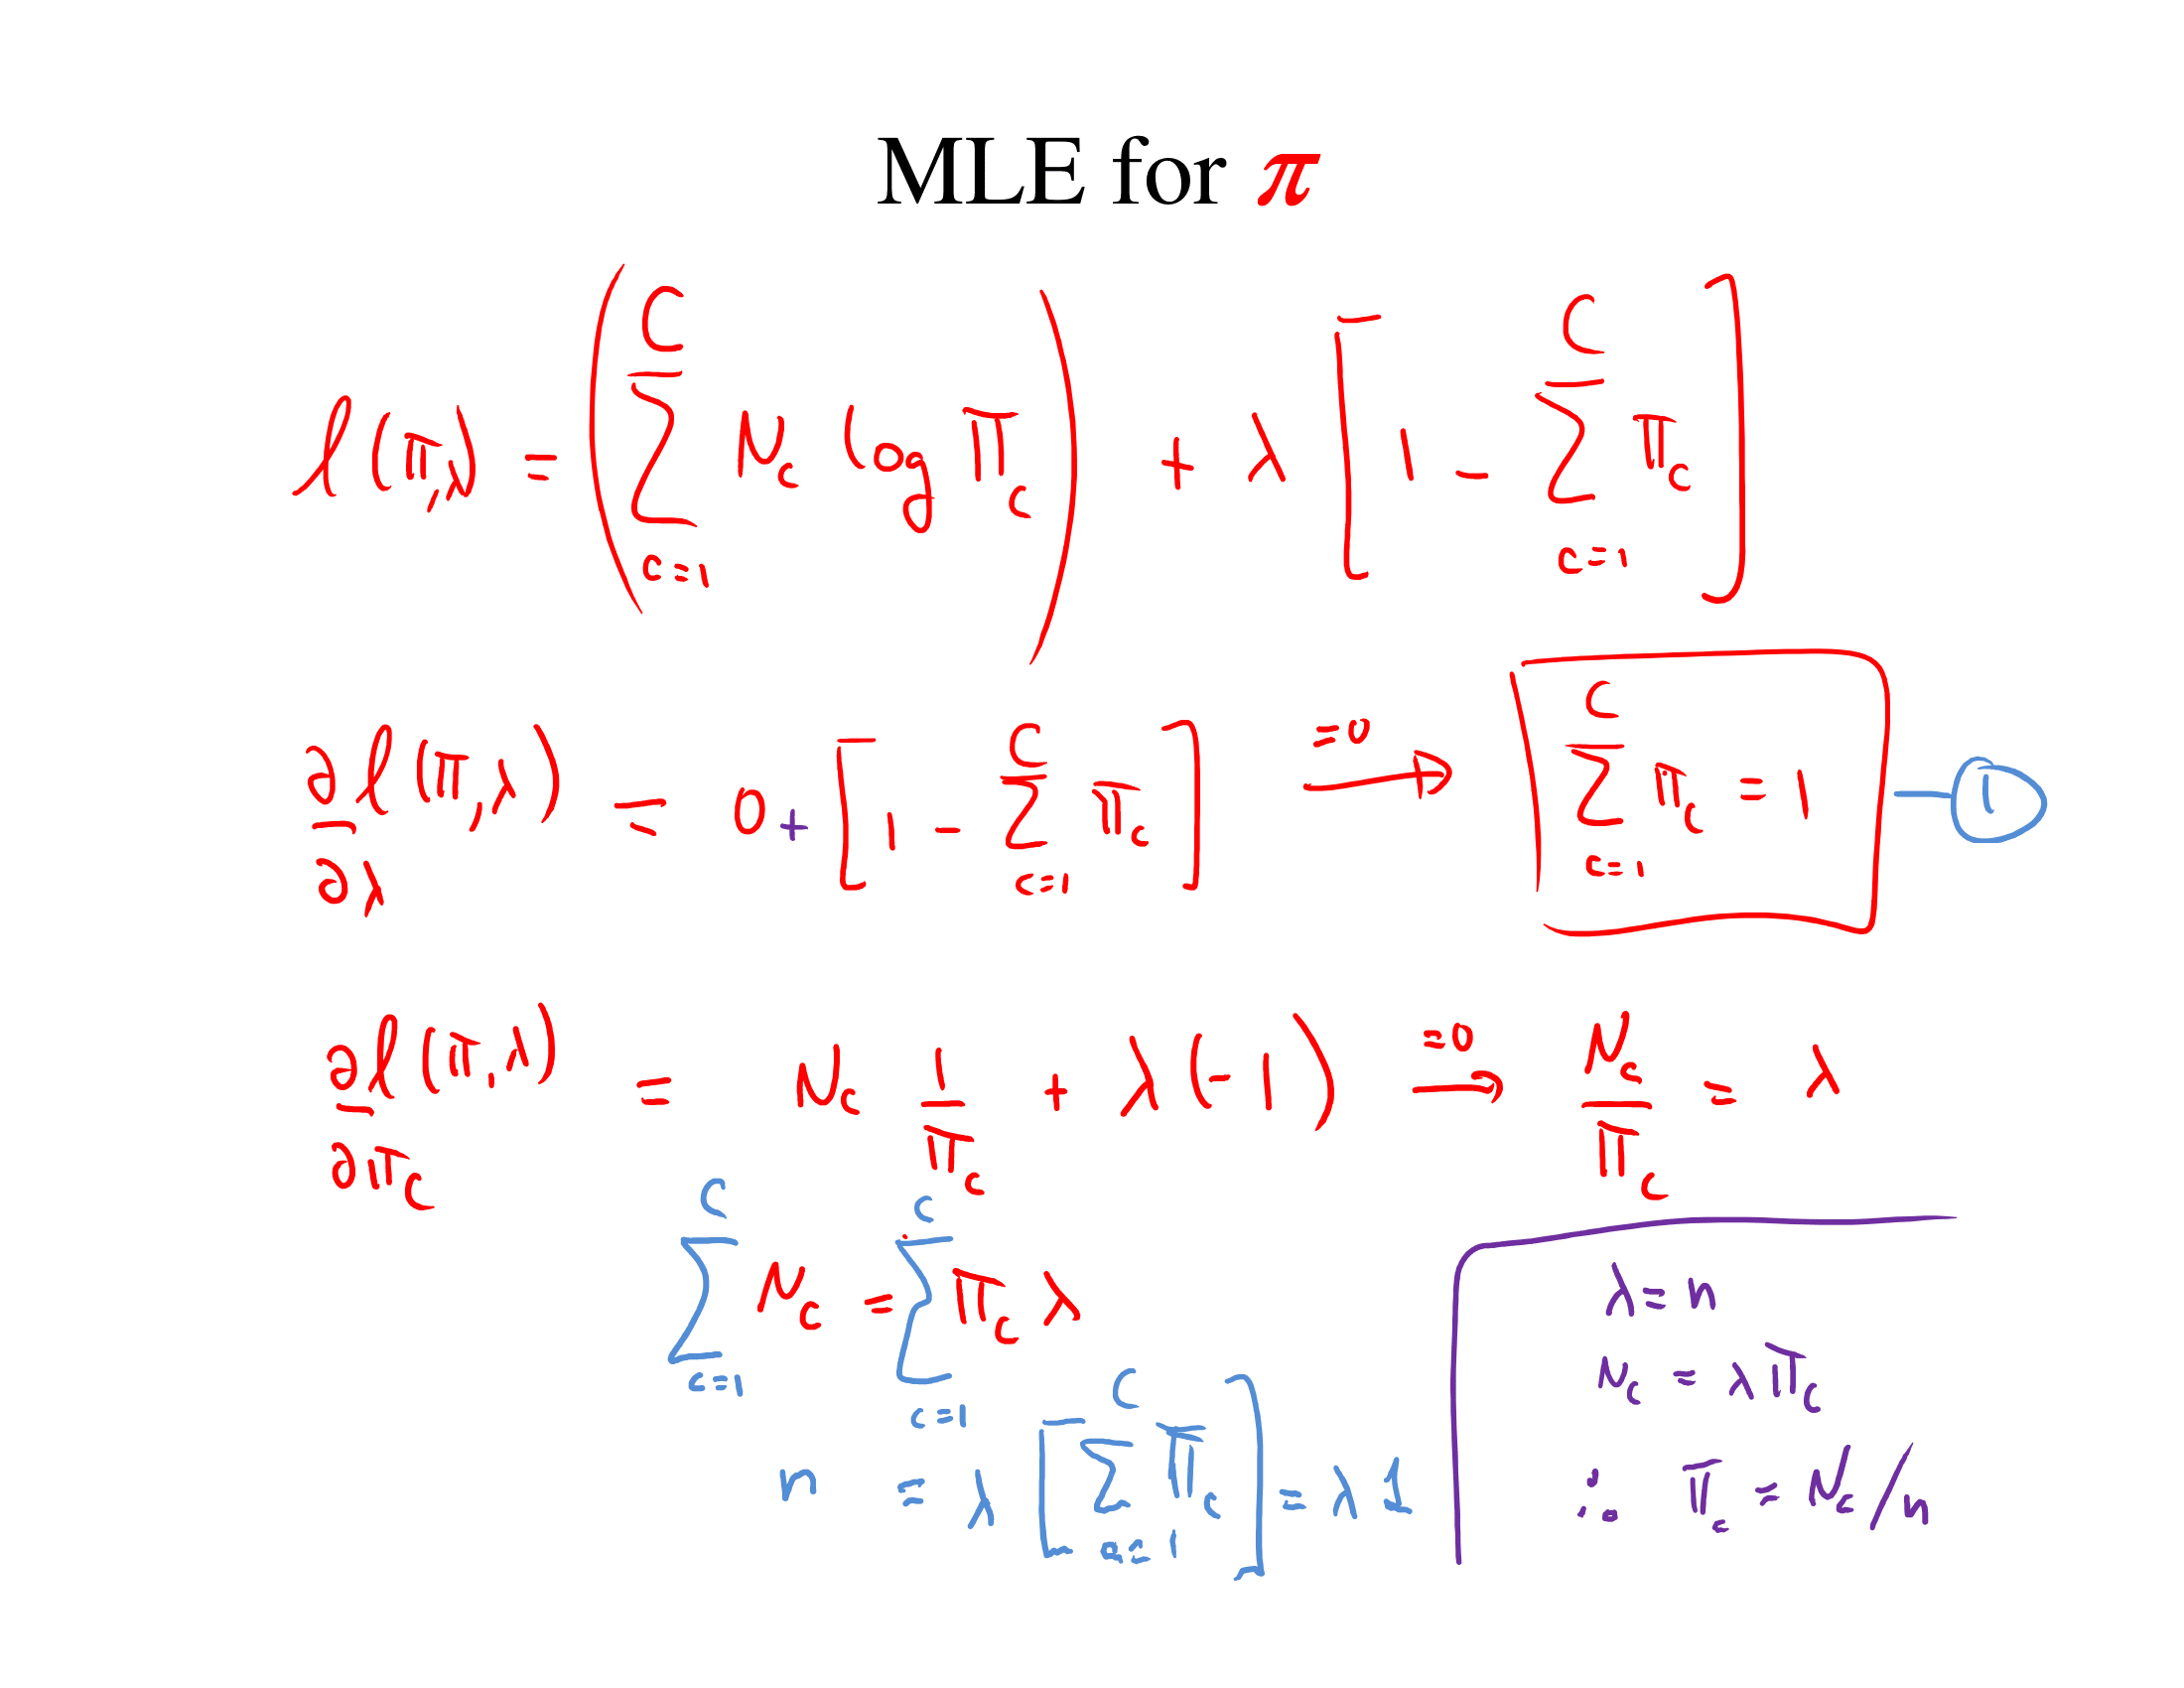 MLE for π
l(π, λ) = (∑_{c=1}^{C} N_c log π_c) + λ [1 - ∑_{c=1}^{C} π_c]
∂l(π, λ)/∂λ = 0 + [1 - ∑_{c=1}^{C} π_c] =0 → ∑_{c=1}^{C} π_c = 1 — ①
∂l(π, λ)/∂π_c = N_c 1/π_c + λ(-1) =0 → N_c/π_c = λ
∑_{c=1}^{C} N_c = ∑_{c=1}^{C} π_c λ
n = λ [∑_{c=1}^{C} π_c] = λ 1
λ = n
N_c = λ π_c
∴ π_c = N_c/n